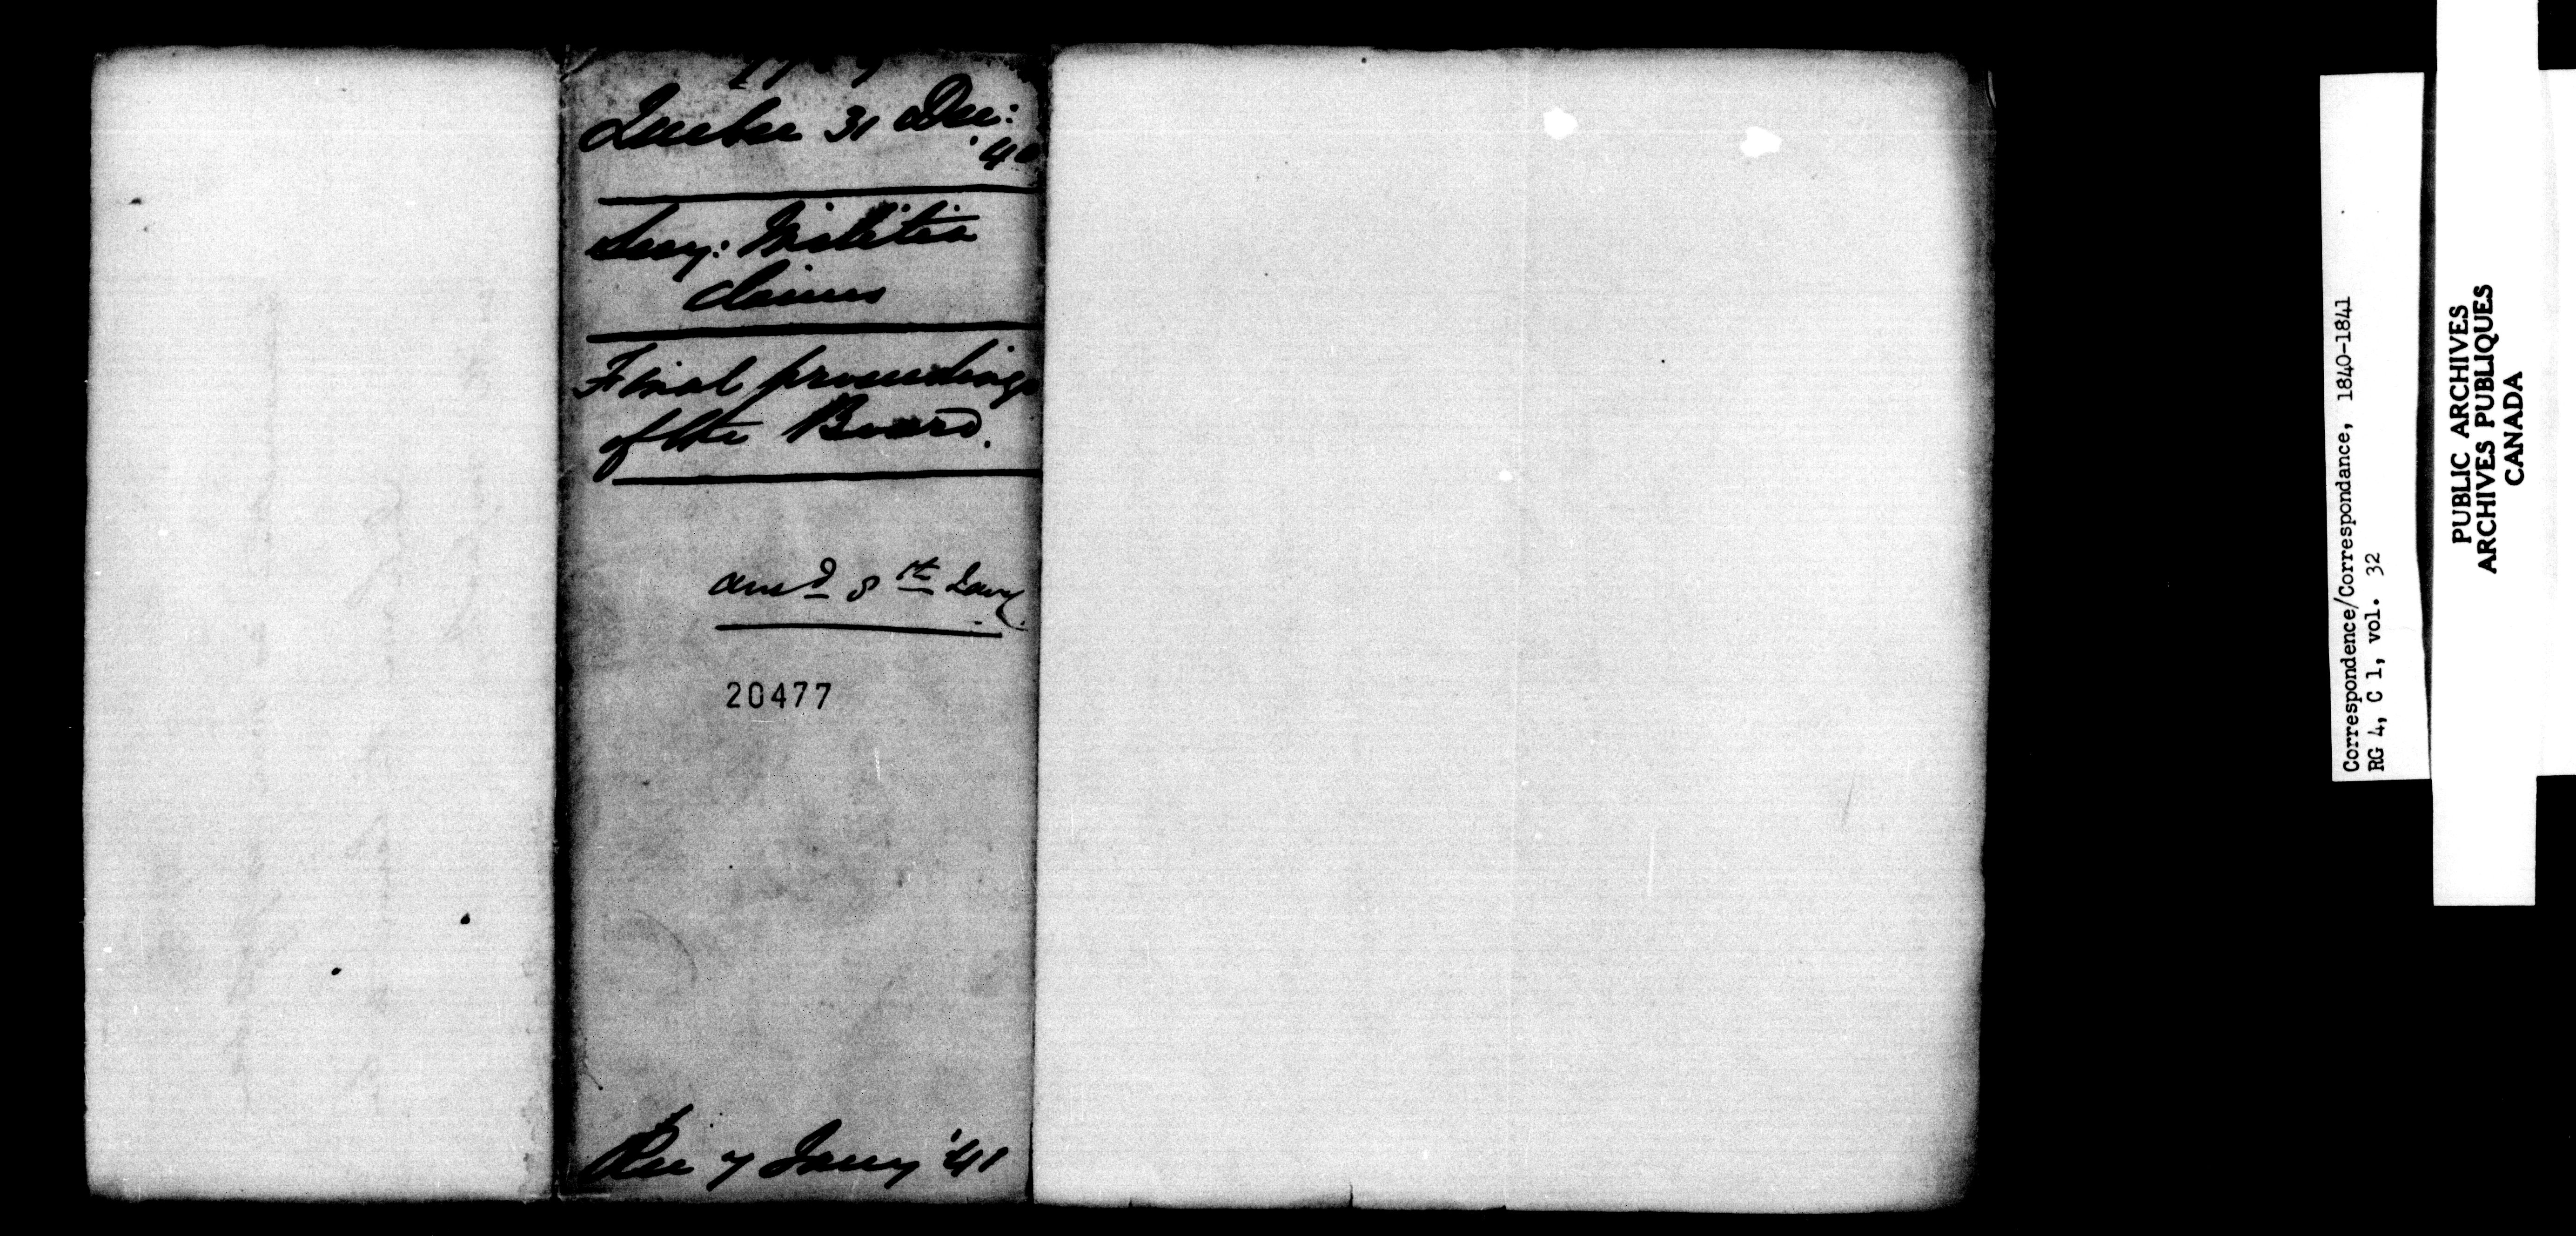 Quebec 31 Dec:
'40
Secy: Militia
Claims
Final proceedings
of the Board.
ansd 8th Jany
20477
Rec 7 Jany '41
Correspondence/Correspondance, 1840-1841
RG 4, C 1, vol. 32
PUBLIC ARCHIVES
ARCHIVES PUBLIQUES
CANADA